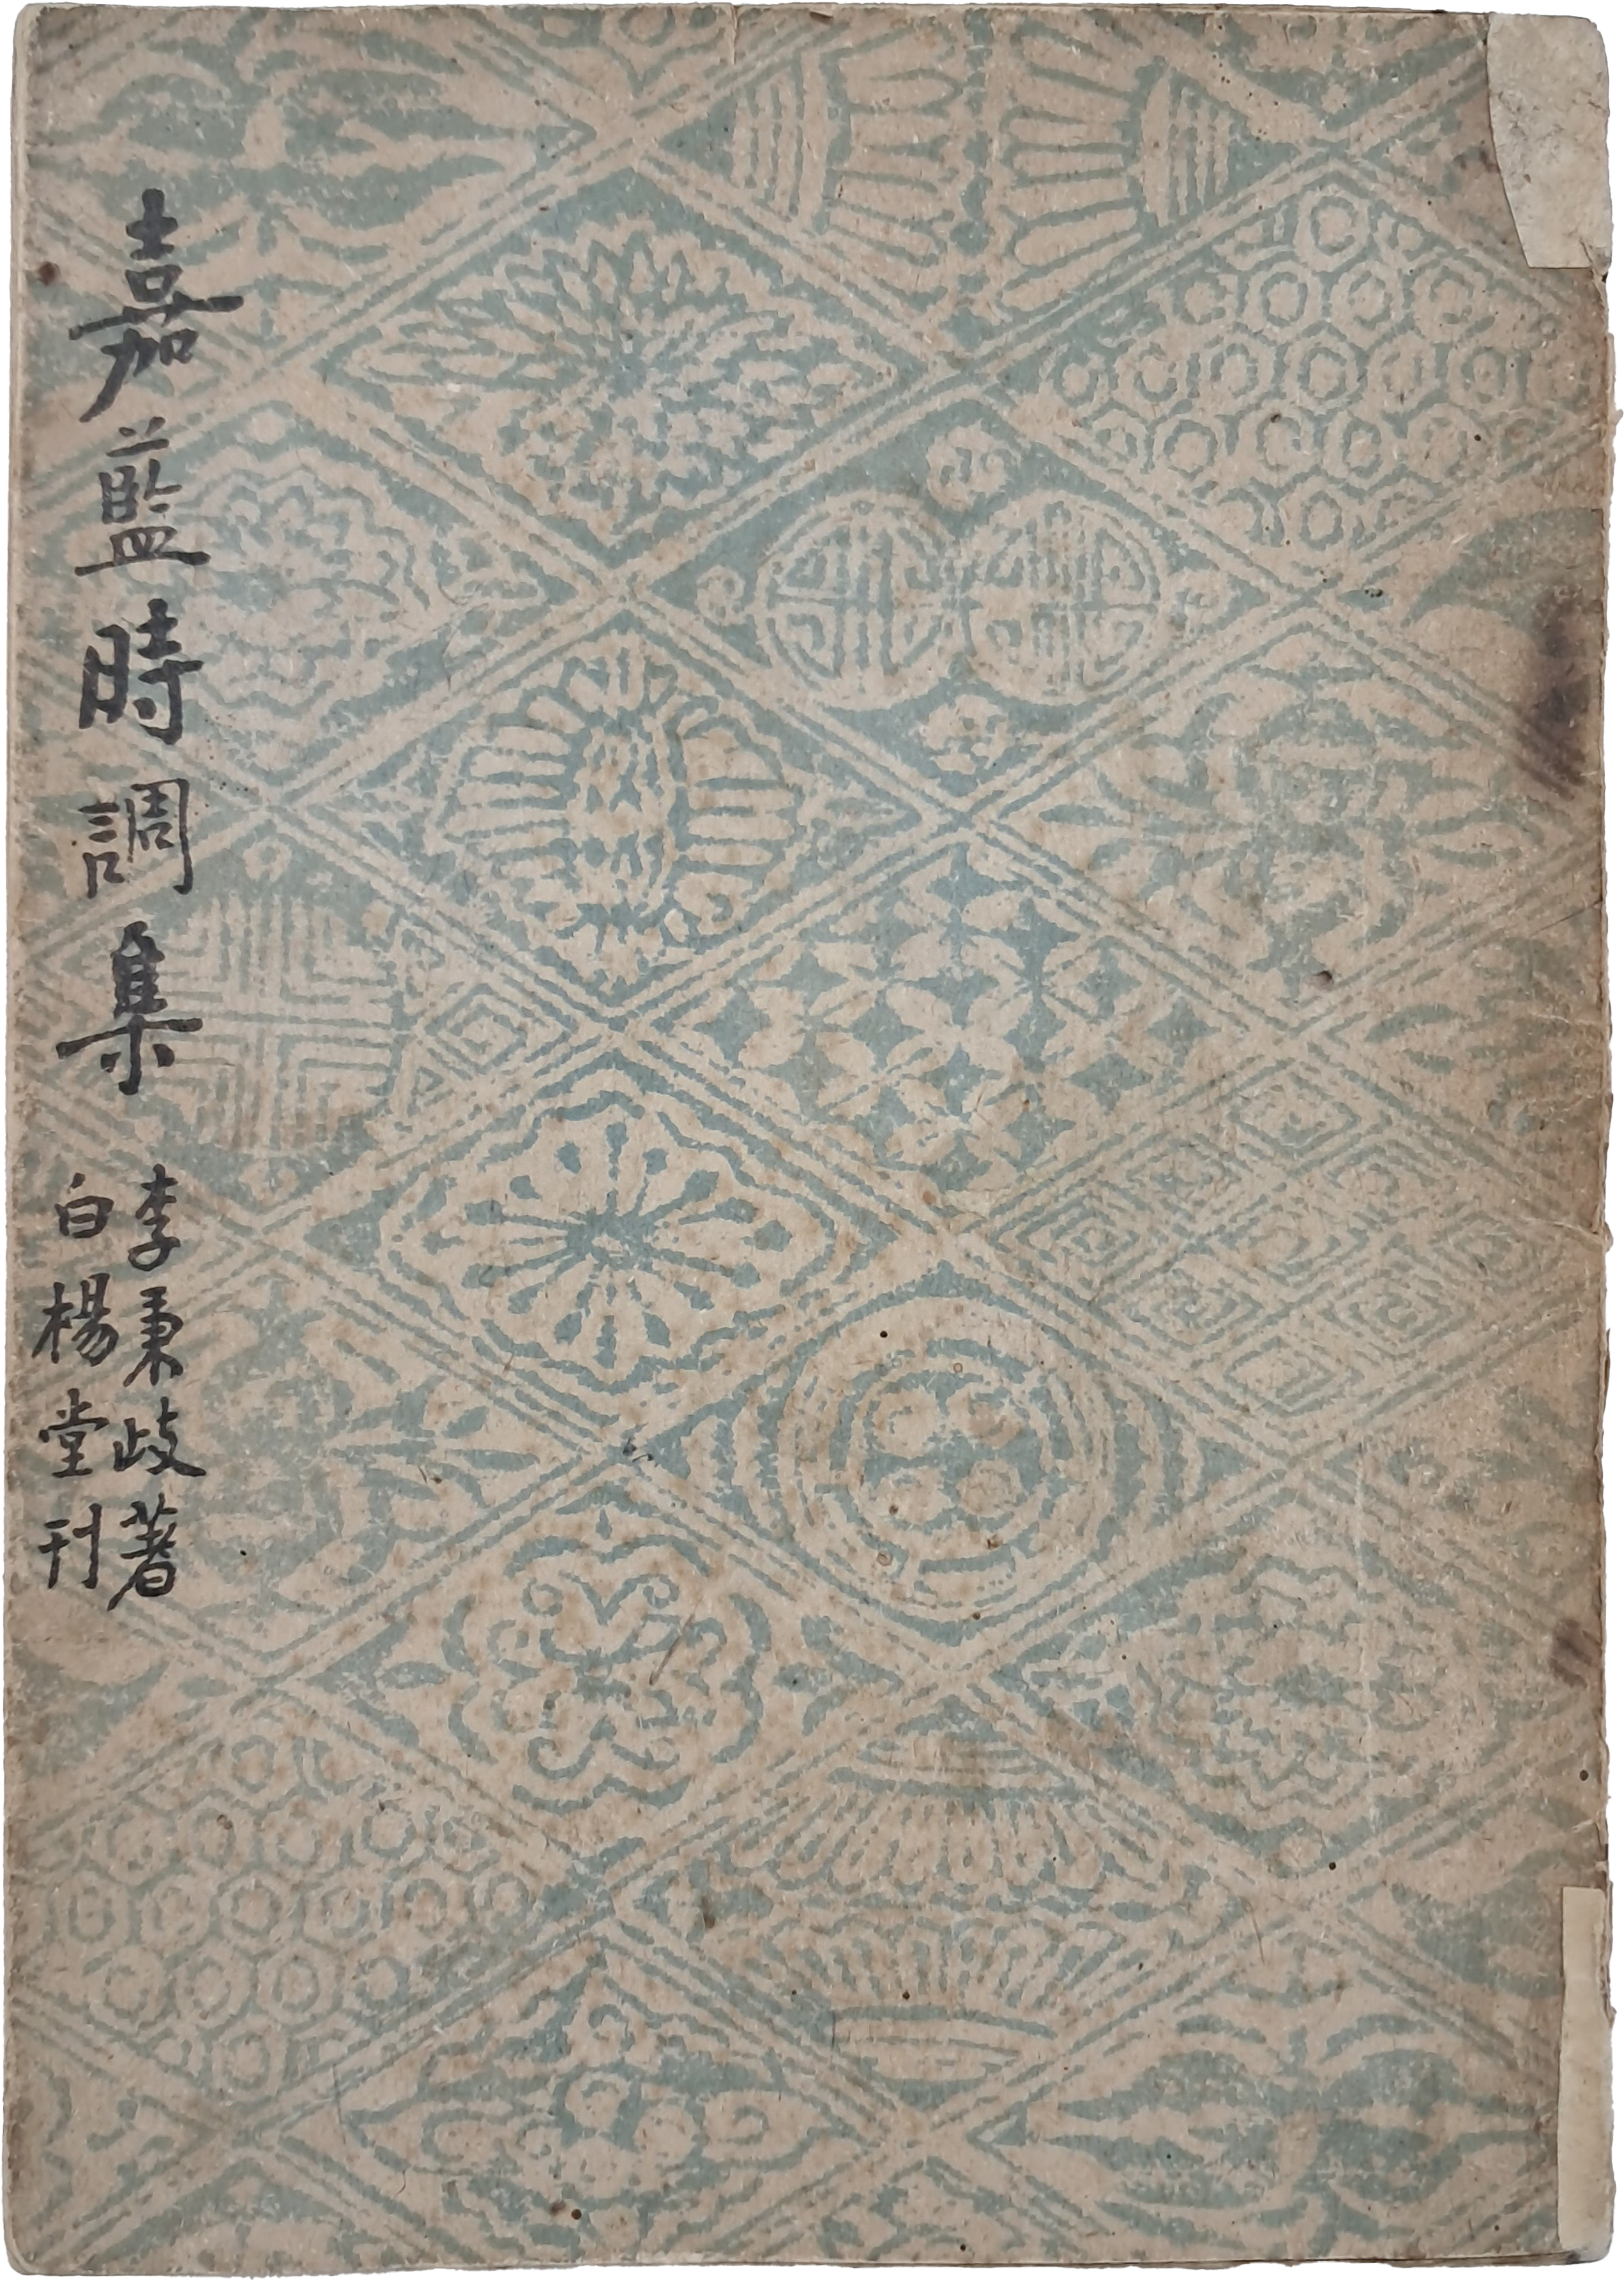 嘉藍時調集
李秉歧著
白楊堂刊